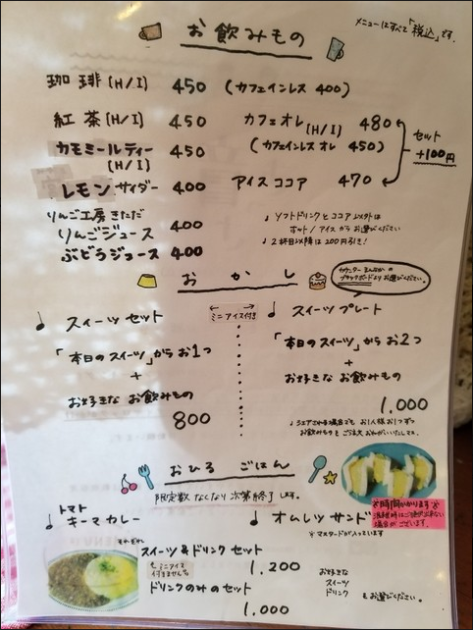 お飲みもの
メニューはすべて「税込」です。
珈琲(H/I) 450 (カフェインレス 400)
紅茶(H/I) 450 カフェオレ(H/I) 480
セット+100円
カモミールティー(H/I) 450 (カフェインレスオレ 450)
レモンサイダー 400 アイスココア 470
りんご工房きただ
りんごジュース 400
ぶどうジュース 400
♩ソフトドリンクとココア以外は
ホット/アイスからお選びください
♩2杯目以降は200円引き!
おかし
カウンターまんなかの
ブラックボードよりお選びください。
♩スイーツセット
ミニアイス付き
♩スイーツプレート
「本日のスイーツ」からお1つ
+
お好きなお飲みもの
800
「本日のスイーツ」からお2つ
+
お好きなお飲みもの
1.000
♩シェアされる場合でもお1人様お1つずつ
お飲みものをご注文おねがいいたします。
おひるごはん
限定数なくなり次第終了します。
♩トマトキーマカレー
♩オムレツサンド
※マスタードが入っています
※お時間かかります※
混雑時にはご提供出来ない
場合がございます。
それぞれ
スイーツ&ドリンクセット
(ミニアイス付きません) 1.200
ドリンクのみのセット
1.000
お好きな
スイーツ
ドリンク
をお選びください。